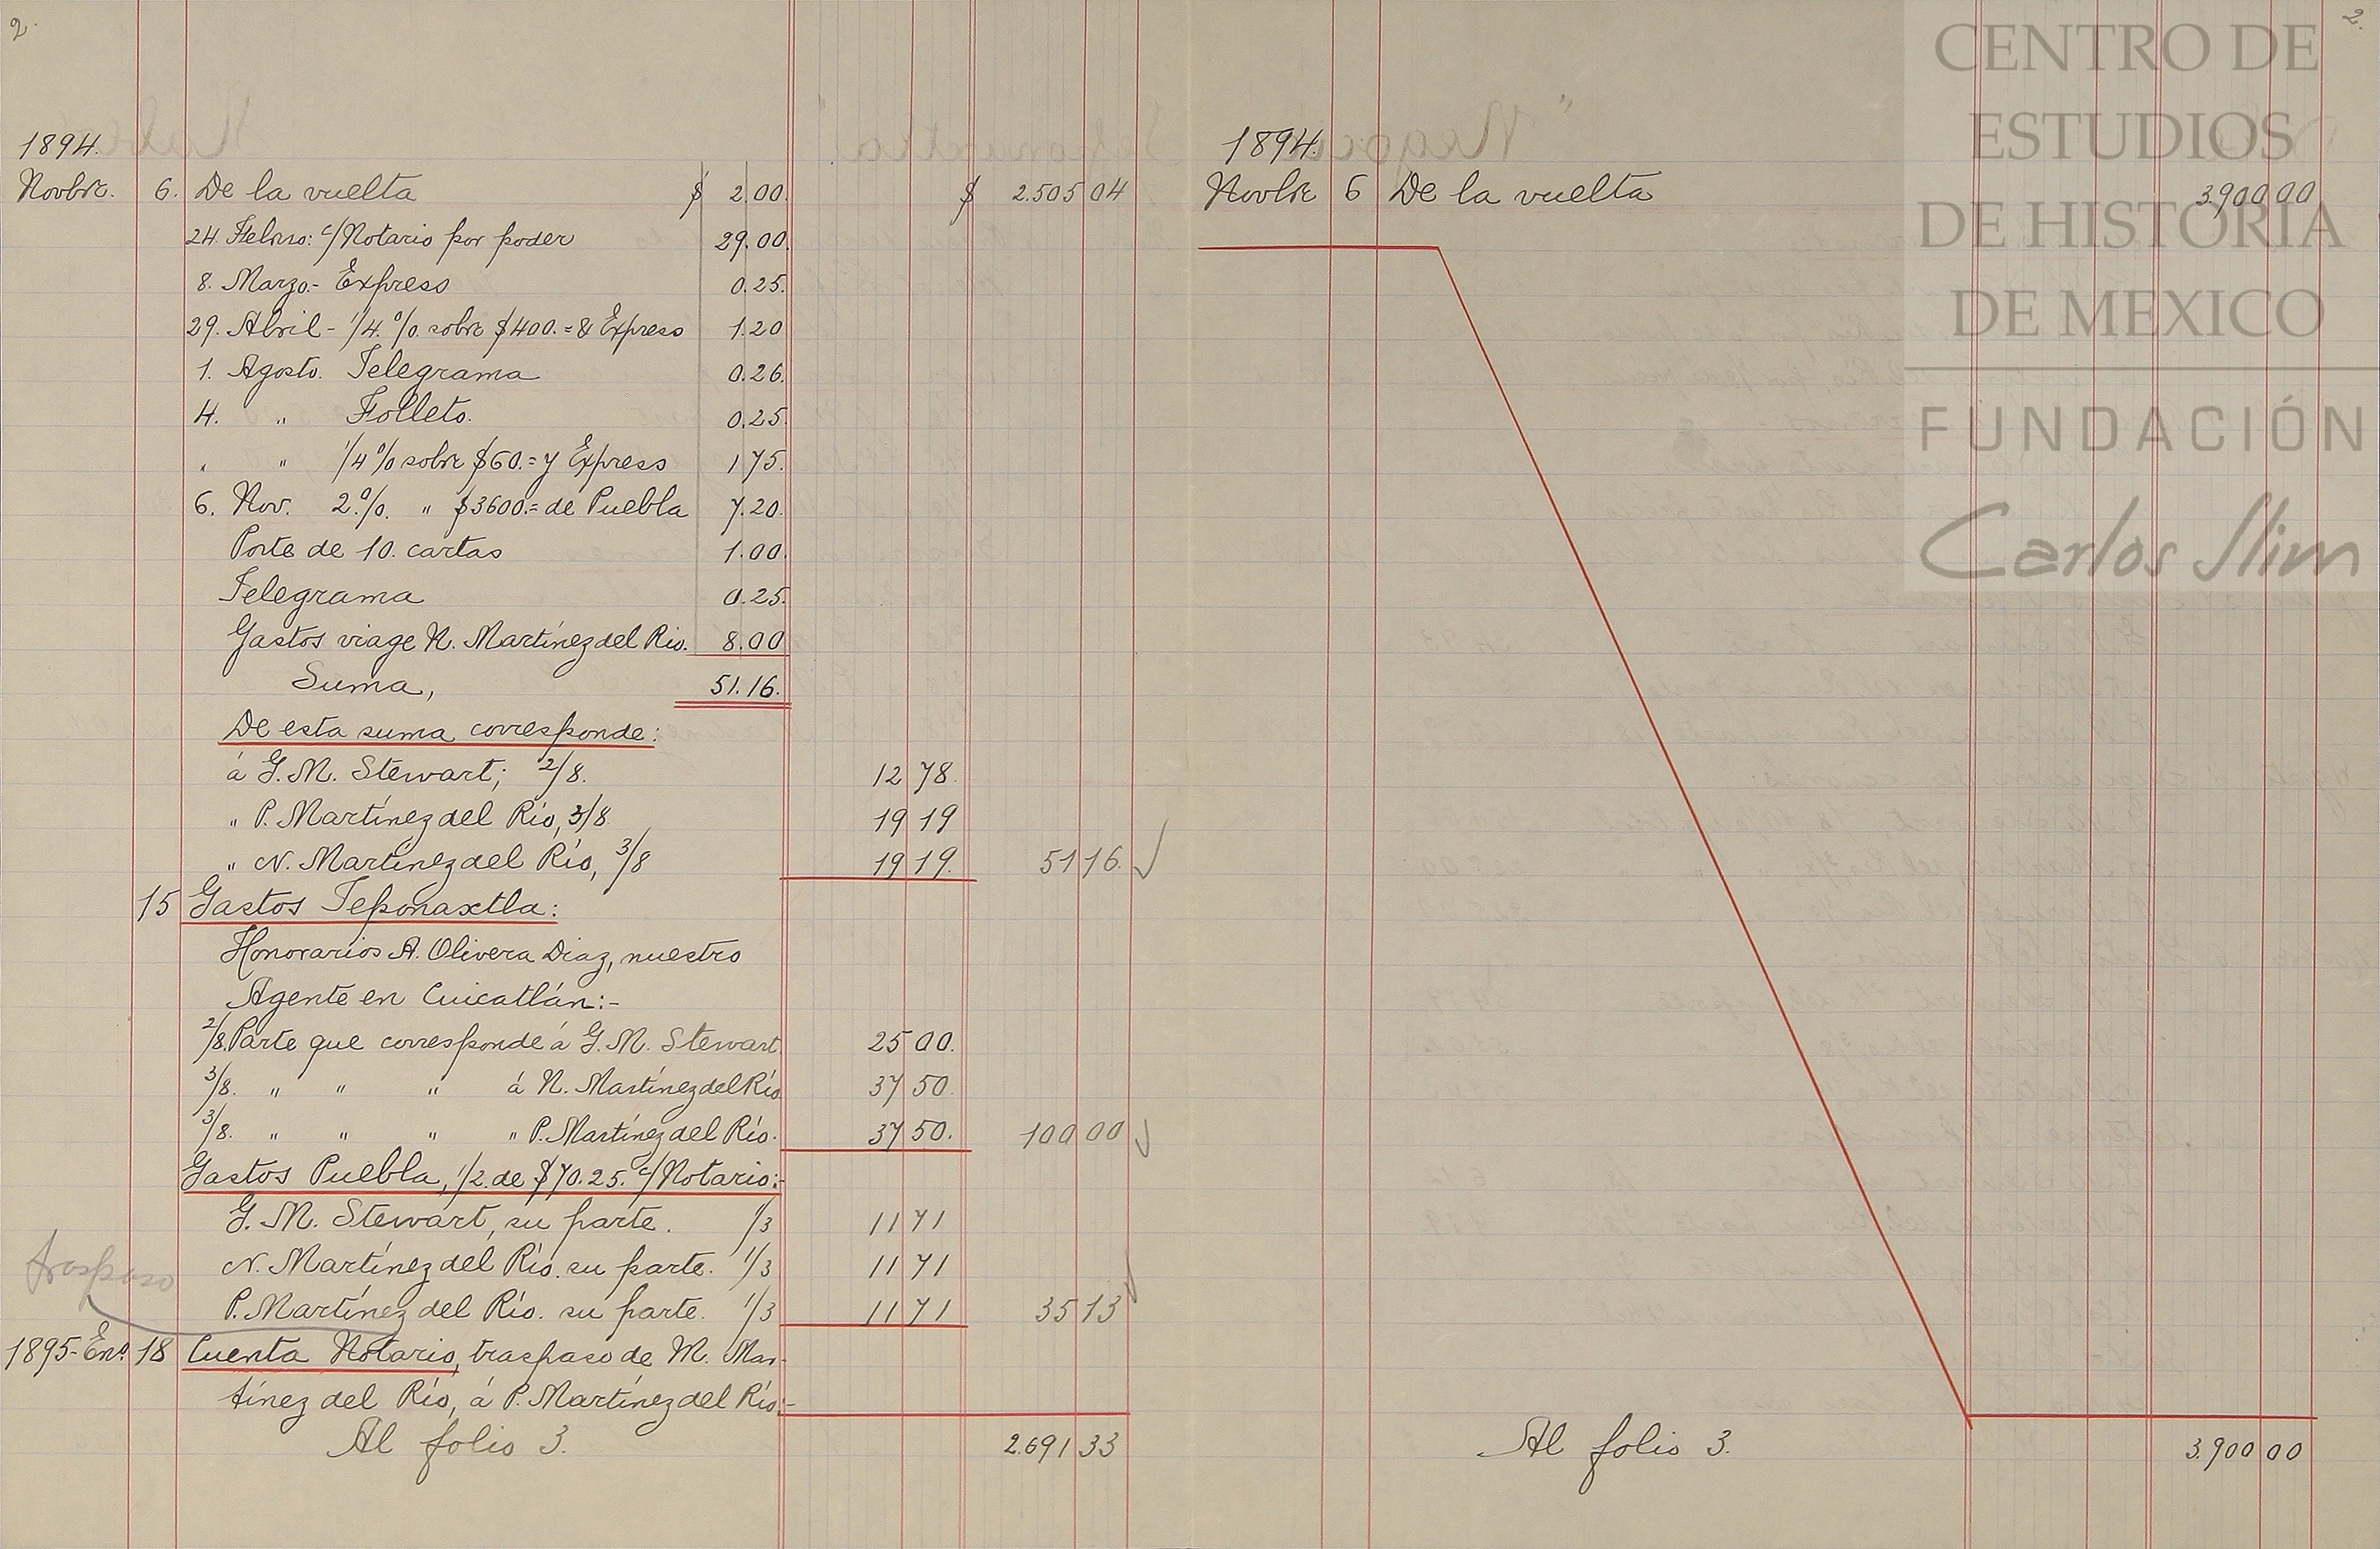 2.
1894.
Novbre. 6. De la vuelta $ 2.00. $ 2.505 04
24. Febrero: c/Notario por poder 29.00.
8. Marzo.- Expreso 0.25.
29. Abril - 1/4 % sobre $400.= & Expreso 1.20
1. Agosto. Telegrama 0.26.
4. " Folleto. 0.25
" " 1/4 % sobre $60.= y Expreso 1 75.
6. Nov. 2 %. " $3600.= de Puebla 7.20.
Porte de 10. cartas 1.00.
Telegrama 0.25.
Gastos viage N. Martínez del Rio. 8.00
Suma, 51.16.
De esta suma corresponde:
á G. M. Stewart; 2/8. 12 78.
" P. Martínez del Río, 3/8 19 19
" N. Martínez del Río, 3/8 19 19. 51 16.
15 Gastos Teponaxtla:
Honorarios A. Olivera Diaz, nuestro
Agente en Cuicatlán:-
2/8. Parte que corresponde á G. M. Stewart 25 00.
3/8. " " " á N. Martínez del Río 37 50.
3/8. " " " " P. Martínez del Río. 37 50. 100 00
Gastos Puebla, 1/2. de $70.25. c/Notario:-
G. M. Stewart, su parte. 1/3 11 71
N. Martínez del Río. su parte. 1/3 11 71
traspaso
P. Martínez del Río. su parte. 1/3 11 71 35 13
1895- Eno. 18 Cuenta Notario, traspaso de M. Mar-
tínez del Río, á P. Martínez del Río:-
Al folio 3. 2.691 33
2.
1894.
Novbre 6 De la vuelta 3.900 00
Al folio 3. 3.900 00
CENTRO DE
ESTUDIOS
DE HISTORIA
DE MEXICO
FUNDACIÓN
Carlos Slim